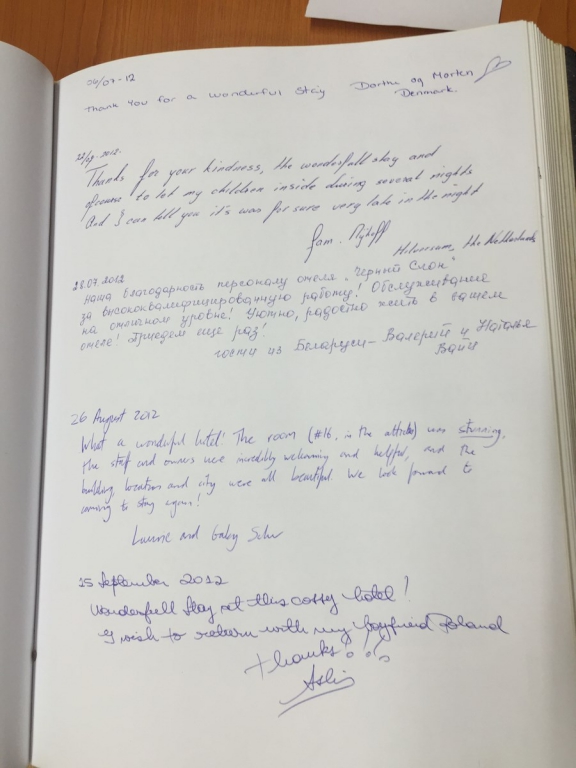 04/07-12
Thank you for a wonderful stay Dorthe og Morten
Denmark.
Thanks for your kindness, the wonderfull stay and
ofcourse to let my children inside during several nights
And I can tell you it's was for sure very late in the night
fam. Nijhoff
Hilversum, the Netherlands
28.07.2012
Наша благодарность персоналу отеля "Черный Слон"
за высококвалифицированную работу! Обслуживание
на отличном уровне! Уютно, радостно жить в вашем
отеле! Приедем еще раз!
гости из Беларуси - Валерий и Наталья
26 August 2012
What a wonderful hotel! The room (#16, in the attic) was stunning,
the staff and owners were incredibly welcoming and helpful, and the
building, location and city were all beautiful. We look forward to
coming to stay again!
Laurie and Gaby
15 September 2012
Wonderfull stay at this cosy hotel!
I wish to return with my boyfreid Roland
thanks